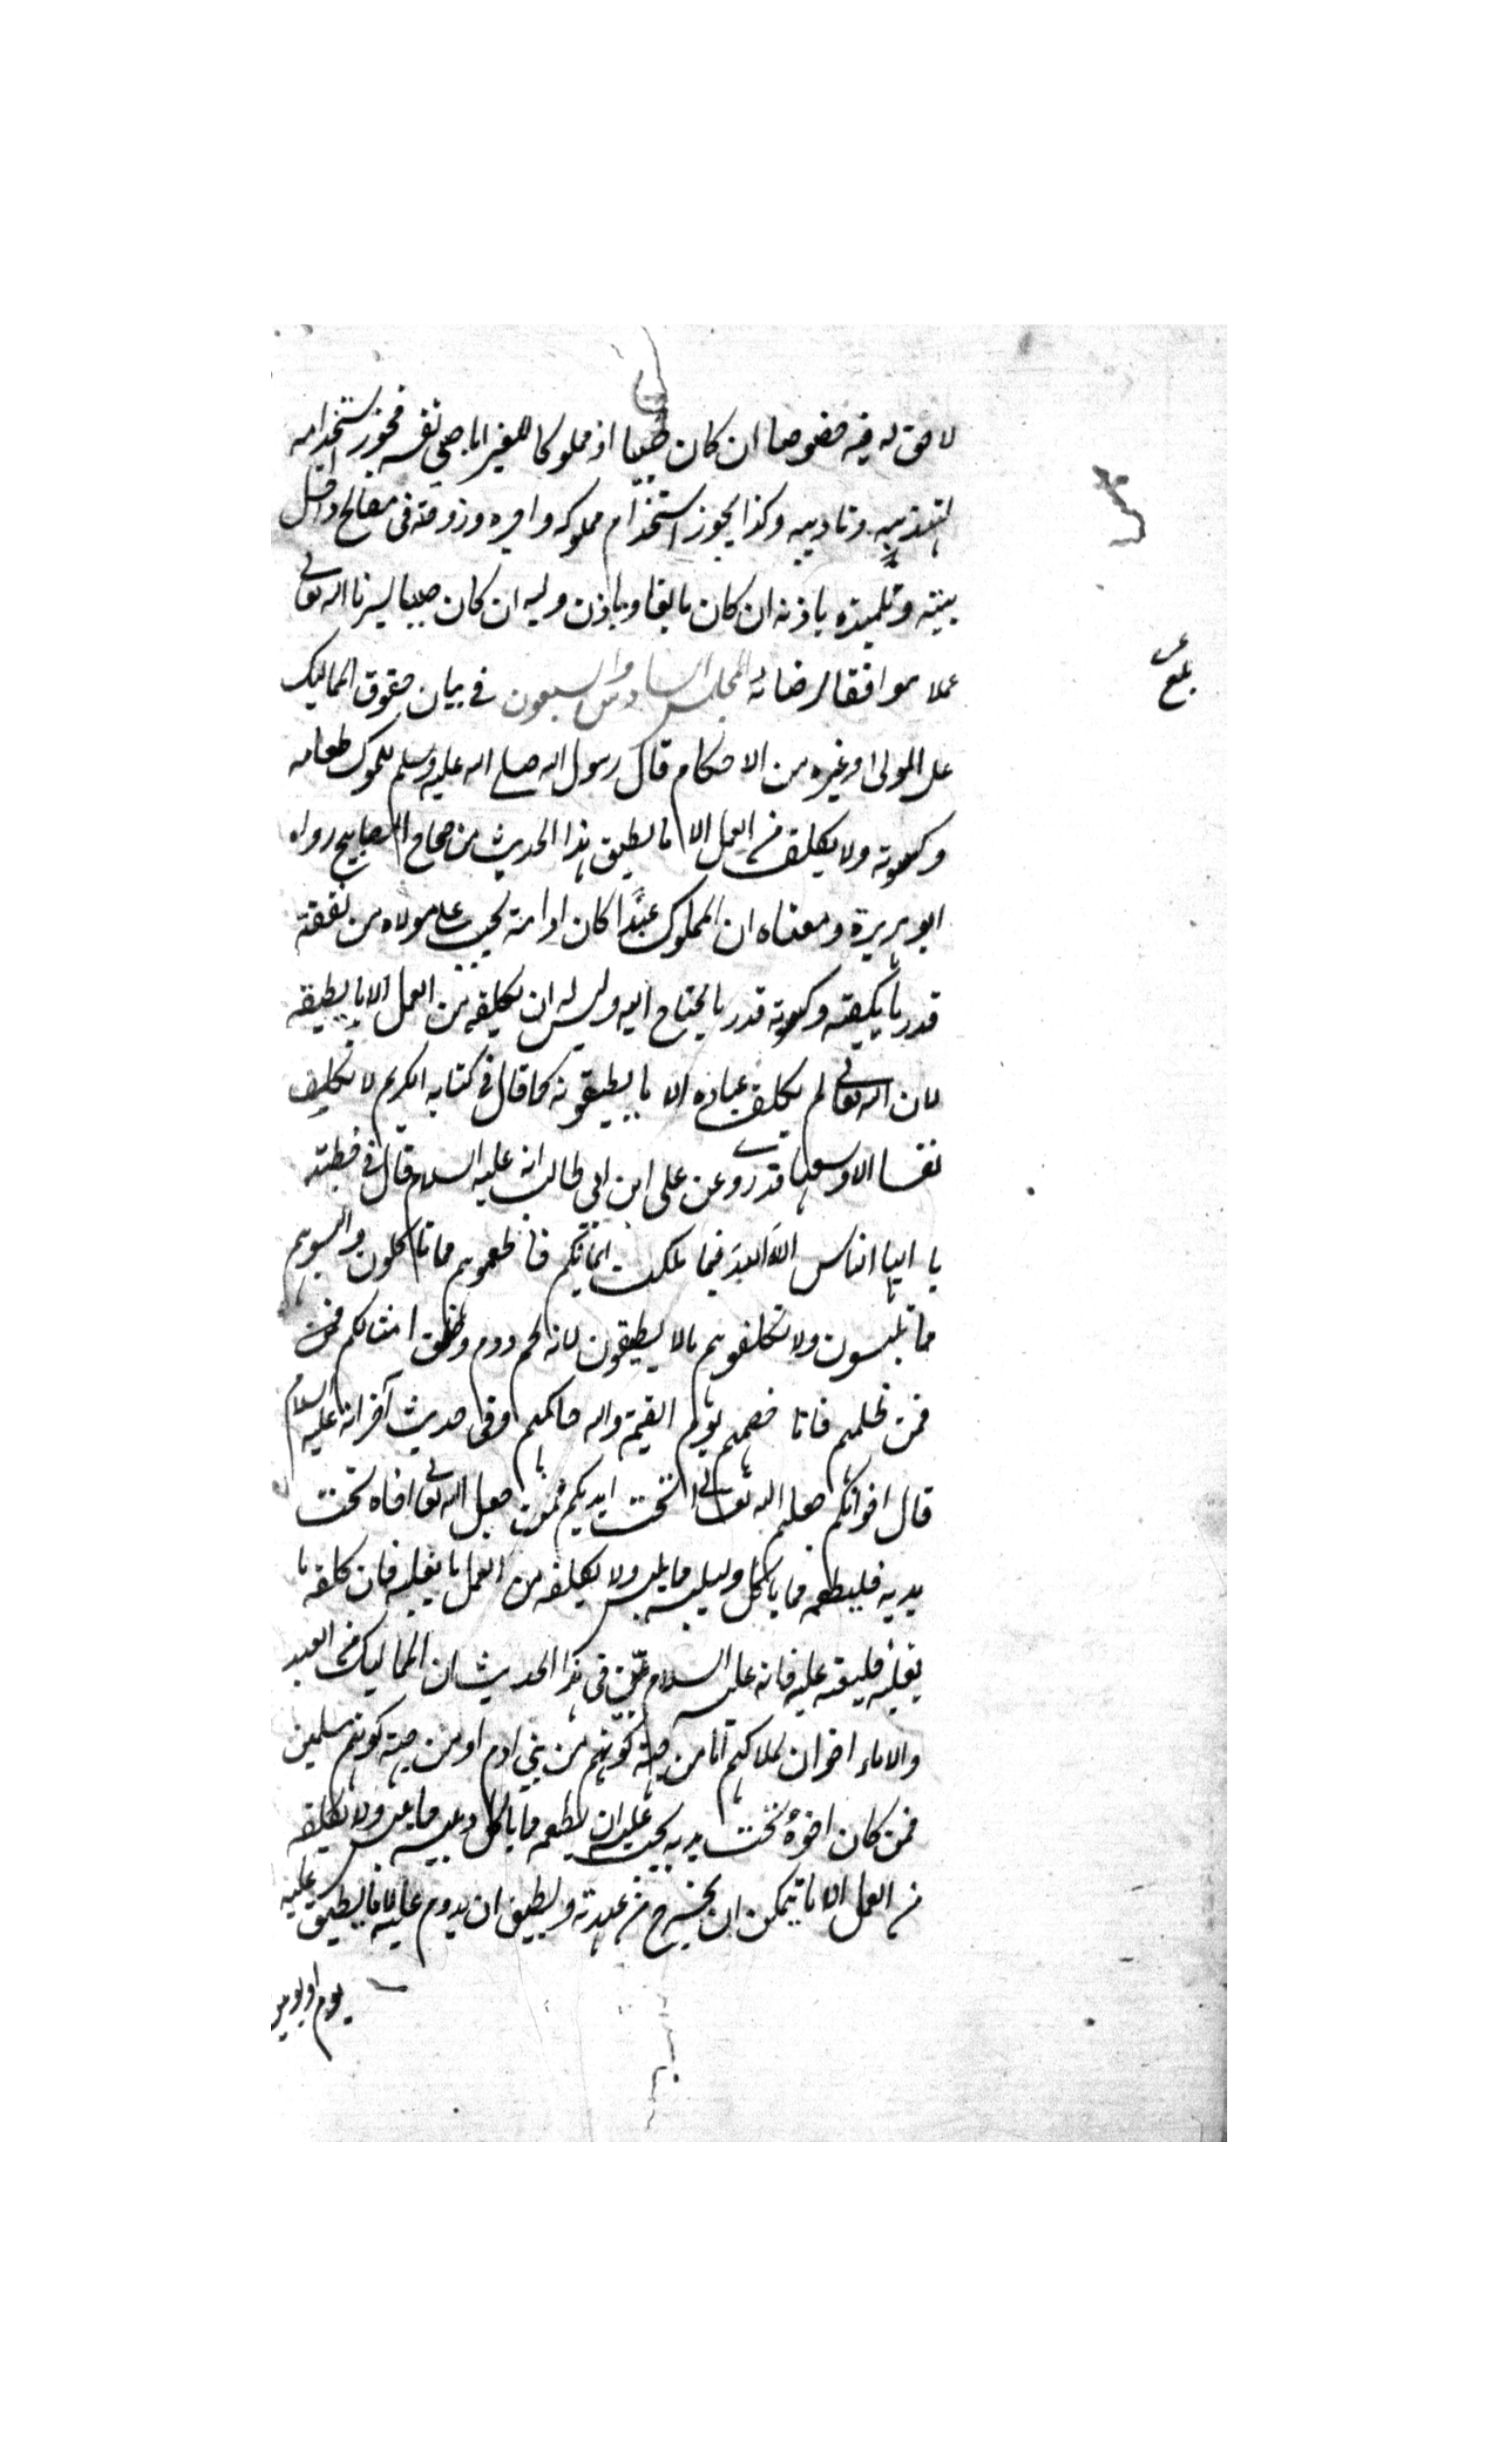 لا حق له فيه خصوصا ان كان صبيا او مملوكا للغير اما صبي نفسه فيجوز استخدامه
لتهذيبه وتاديبه وكذا يجوز استخدام مملوكه واجيره وزوجته في مصالح داخل
بيته وتلميذه باذنه ان كان بالغا وباذن وليه ان كان صبيا يسرنا الله تعالى
عملا موافقا لرضائه المجلس السادس والسبعون في بيان حقوق المماليك
على المولى وغيره من الاحكام قال رسول الله صلى الله عليه وسلم للمملوك طعامه
وكسوته ولا يكلف من العمل الا ما يطيق هذا الحديث من صحاح المصابيح رواه
ابو هريرة ومعناه ان المملوك عبدا كان او امة يجب على مولاه من نفقته
قدر ما يكفيه وكسوته قدر ما يحتاج اليه وليس له ان يكلفه من العمل الا ما يطيقه
لان الله تعالى لم يكلف عباده الا ما يطيقونه كما قال في كتابه الكريم لا يكلف
نفسا الا وسعها وقد روى عن على ابن ابى طالب انه عليه السلام قال في خطبته
يا ايها الناس الله الله فيما ملكت ايمانكم فاطعموهم مما تاكلون والبسوهم
مما تلبسون ولا تكلفوهم ما لا يطيقون لانهم لحم ودم وخلق امثالكم فمن
فمن ظلمهم فانا خصمهم يوم القيمة والله حاكمهم وفى حديث آخر انه عليه السلام
قال اخوانكم جعلهم الله تعالى تحت ايديكم فمن جعل الله تعالى اخاه تحت
يديه فليطعمه مما ياكل وليلبسه مما يلبس ولا يكلفه من العمل ما يغلبه فان كلفه ما
يغلبه فليعنه عليه فانه عليه السلام بين في هذا الحديث ان المماليك من العبيد
والاماء اخوان لملاكهم اما من جهة كونهم من بني ادم او من جهة كونهم مسلمين
فمن كان اخوه تحت يديه يجب عليه ان يطعمه مما ياكل ويلبسه مما يلبس ولا يكلفه
من العمل الا ما يمكن ان يخرج من عهدته ويطيق ان يدوم عليه لا ما يطيق عليه
يوم او يومين
بلغ